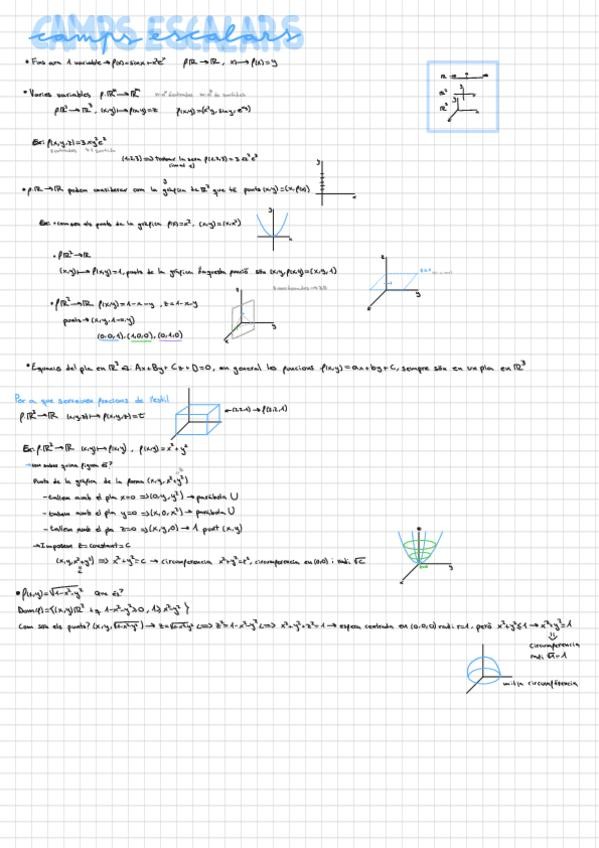 CAMPS ESCALARS
camps escalars
• Fins ara 1 variable → f(x)=sinx+x²eˣ f:ℝ→ℝ, x↦f(x)=y
ℝ
ℝ²
ℝ³
• Varies variables f:ℝⁿ→ℝᵐ
f:ℝ²→ℝ³, (x,y)↦f(x,y)=z
Ex: f(x,y,z)=3xy²eᶻ
(1,2,3) ⟹ f(1,2,3)=
• f:ℝ→ℝ podem considerar com la gràfica de ℝ² que té punts (x,y)=(x,f(x))
Ex: com son els punts de la gràfica f(x)=x², (x,y)=(x,x²)
• f:ℝ²→ℝ
(x,y)↦f(x,y)=1, punts de la gràfica d'aquesta funció són (x,y,f(x,y))=(x,y,1)
• f:ℝ²→ℝ f(x,y)=1-x-y, z=1-x-y
punts→(x,y,1-x-y)
(0,0,1), (1,0,0), (0,1,0)
• Equació del pla en ℝ³ és Ax+By+Cz+D=0, en general les funcions f(x,y)=ax+by+c, sempre són en un pla en ℝ³
Per a què serveixen funcions de l'estil
f:ℝ³→ℝ (x,y,z)↦f(x,y,z)=t
Ex: f:ℝ²→ℝ (x,y)↦f(x,y), f(x,y)=x²+y²
→com saber quina figura és?
Punts de la gràfica de la forma (x,y,x²+y²)
-tallem amb el pla x=0 ⟹(0,y,y²)→paràbola U
-tallem amb el pla y=0 ⟹(x,0,x²)→paràbola U
-tallem amb el pla z=0 ⟹(x,y,0)→1 punt (x,y)
→Imposem z=constant=C
(x,y,x²+y²) ⟹ x²+y²=C → circumferència x²+y²=r², circumferència en (0,0) i radi √C
• f(x,y)=√1-x²-y² Què és?
Dom(f)={(x,y)∈ℝ² t.q 1-x²-y²≥0, 1≥x²+y²}
Com són els punts? (x,y,√1-x²-y²) → z=√1-x²-y² ⟺ z²=1-x²-y² ⟺ x²+y²+z²=1 → esfera centrada en (0,0,0) radi r=1, però x²+y²≤1 → x²+y²=1
⇓
circumferencia
radi √1=1
mitja circumferència